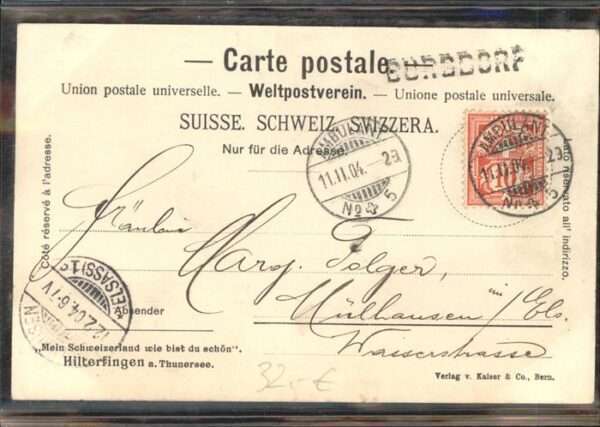 — Carte postale. —
BURGDORF
Union postale universelle. — Weltpostverein. — Unione postale universale.
SUISSE. SCHWEIZ. SVIZZERA.
Nur für die Adresse.
Côté réservé à l'adresse.
Lato riservato all' indirizzo.
AMBULANT
11.II.04. — 29
No 5
AMBULANT
11.II.04. — 29
No 5
10
Fräulein
Marg. Folger,
Mülhausen im/Els.
Wasserstrasse
(ELSASS) 1
12.2.04. 6-7V
Absender
„Mein Schweizerland wie bist du schön".
Hilterfingen a. Thunersee.
32,- €
Verlag v. Kaiser & Co., Bern.